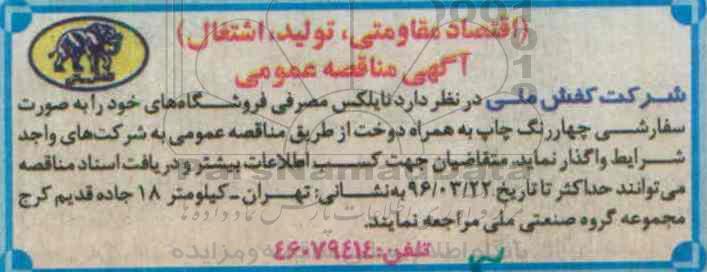 (اقتصاد مقاومتی، تولید، اشتغال)
آگهی مناقصه عمومی
شرکت کفش ملی در نظر دارد نایلکس مصرفی فروشگاه‌های خود را به صورت
سفارشی چهاررنگ چاپ به همراه دوخت از طریق مناقصه عمومی به شرکت‌های واجد
شرایط واگذار نماید. متقاضیان جهت کسب اطلاعات بیشتر و دریافت اسناد مناقصه
می‌توانند حداکثر تا تاریخ ۹۶/۰۳/۲۲ به نشانی: تهران ـ کیلومتر ۱۸ جاده قدیم کرج
مجموعه گروه صنعتی ملی مراجعه نمایند.
تلفن: ۴۶۰۷۹۴۱۴
ParsNamadData